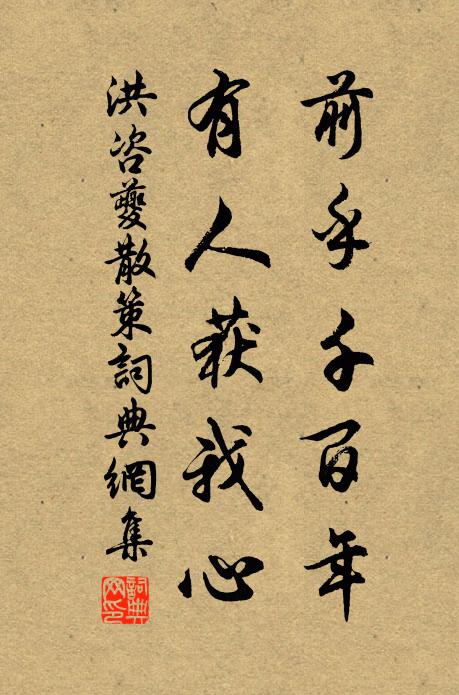 前乎千百年
有人获我心
洪咨夔散策詞典網集
詞典网印